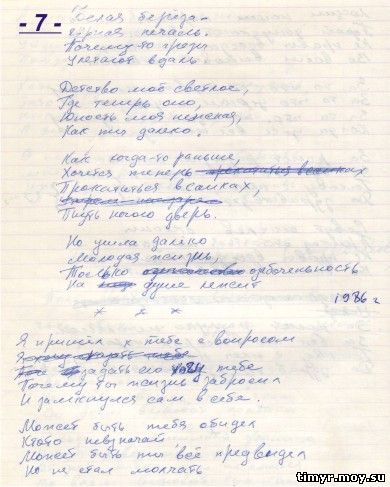 - 7 -
Белая береза -
Ярная печаль.
Почему-то грёзы
Улетают вдаль

Детство моё светлое,
Где теперь оно,
Юность моя нежная,
Как ты далеко.

Как когда-то раньше,
Хочется теперь прокатиться в санках
Прокатиться в санках,
Пнуть ногою дверь.

Но ушла далёко
Молодая жизнь,
Только озабоченность
На душе лежит
1986 г
* * *
Я пришёл к тебе с вопросом
Я хочу задать тебе
задать его хочу тебе
Почему ты жизнь забросил
И замкнулся сам в себе.

Может быть тебя обидел
Ктото невзначай
Может быть ты всё предвидел
Но не стал молчать
timyr.moy.su